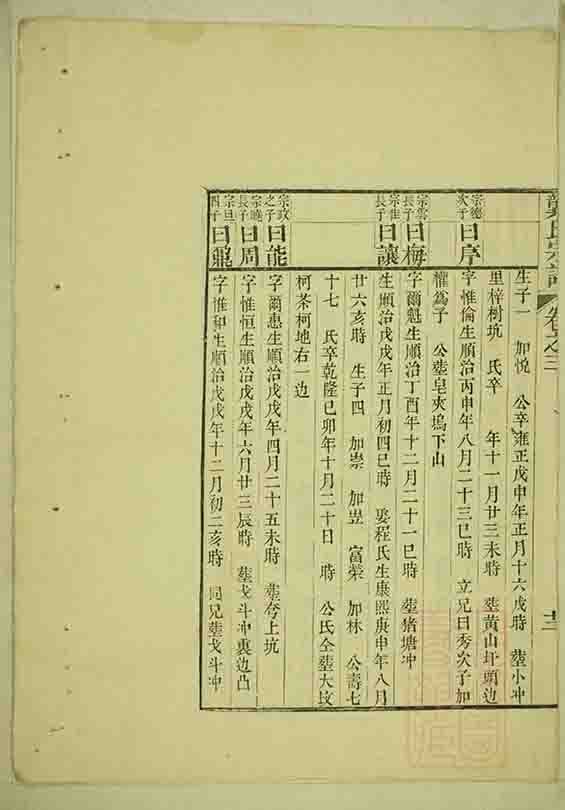 氏宗譜 卷之三 十二
生子一 加悅 公卒雍正戊申年正月十六戌時 塟小冲
里梓樹坑 氏卒 年十一月廿三未時 塟黄山圩頭边
宗德次子 曰序 字惟倫生順治丙申年八月二十三巳時 立兄曰秀次子加
權爲子 公塟皂夾塢下山
宗雲長子 曰梅 字爾魁生順治丁酉年十二月二十一巳時 塟猪塘冲
宗惟長子 曰讓 生順治戊戌年正月初四巳時 娶程氏生康熙庚申年八月
廿六亥時 生子四 加崇 加豈 富榮 加林 公壽七
十七 氏卒乾隆己卯年十月二十日 時 公氏全塟大坟
柯茶柯地右一边
宗政之子 曰能 字爾惠生順治戊戌年四月二十五未時 塟夸上坑
宗曉長子 曰周 字惟恒生順治戊戌年六月廿三辰時 塟戈斗冲裏边凸
宗旦四子 曰龍 字惟和生順治戊戌年十二月初二亥時 同兄塟戈斗冲